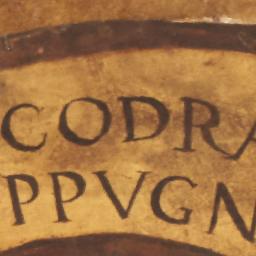 CODRA
PPVGN